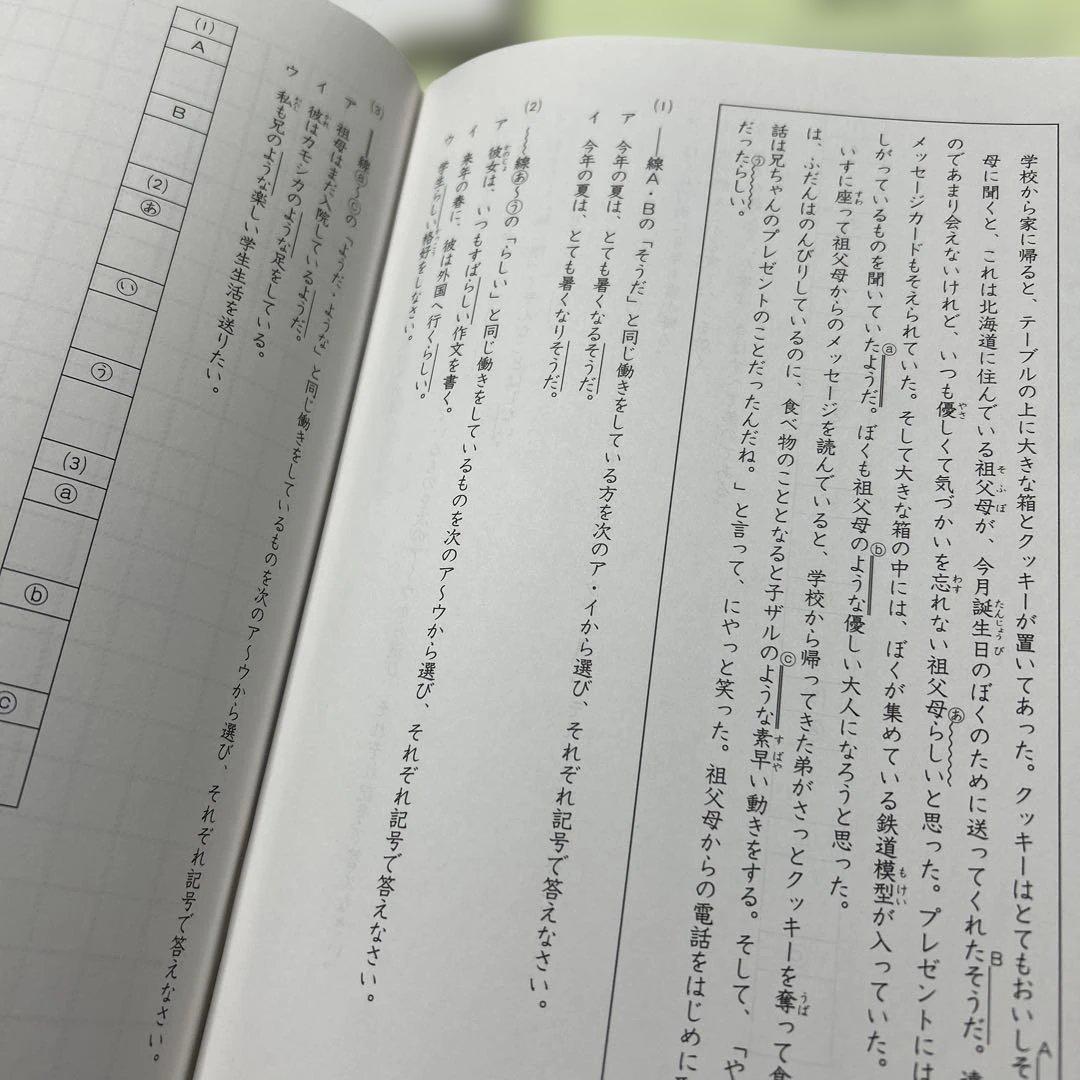 学校から家に帰ると、テーブルの上に大きな箱とクッキーが置いてあった。クッキーはとてもおいしそ
A
母に聞くと、これは北海道に住んでいる祖父母が、今月誕生日のぼくのために送ってくれたそうだ。
そふぼ
たんじょうび
B
のであまり会えないけれど、いつも優しくて気づかいを忘れない祖父母らしいと思った。プレゼントには
やさ
わす
あ
メッセージカードもそえられていた。そして大きな箱の中には、ぼくが集めている鉄道模型が入っていた。
もけい
しがっているものを聞いていたようだ。ぼくも祖父母のような優しい大人になろうと思った。
a
b
いすに座って祖父母からのメッセージを読んでいると、学校から帰ってきた弟がさっとクッキーを奪って食
すわ
うば
は、ふだんはのんびりしているのに、食べ物のこととなると子ザルのような素早い動きをする。そして、「や
c
すばや
話は兄ちゃんのプレゼントのことだったんだね。」と言って、にやっと笑った。祖父母からの電話をはじめに
だったらしい。
う
(1) ――線A・Bの「そうだ」と同じ働きをしている方を次のア・イから選び、それぞれ記号で答えなさい。
ア 今年の夏は、とても暑くなるそうだ。
イ 今年の夏は、とても暑くなりそうだ。
(2) 〜〜線あ〜うの「らしい」と同じ働きをしているものを次のア〜ウから選び、それぞれ記号で答えなさい。
ア 彼女は、いつもすばらしい作文を書く。
かのじょ
イ 来年の春に、彼は外国へ行くらしい。
ウ 学生らしい格好をしなさい。
かっこう
(3) ――線a〜cの「ようだ・ような」と同じ働きをしているものを次のア〜ウから選び、それぞれ記号で答えなさい。
ア 祖母はまだ入院しているようだ。
イ 彼はカモシカのような足をしている。
かれ
ウ 私も兄のような楽しい学生生活を送りたい。
(1)
A
B
(2)
あ
い
う
(3)
a
b
c